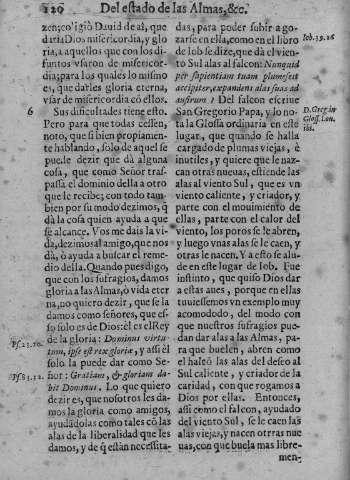 120 Del estado de las Almas, &c.
zen; co'igiò Dauid de aì, que
daria Dios misericordia, y glo
ria, a aquellos que con los di-
funtos vsaron de misericor-
dia; para los quales lo mismo
es, que darles gloria eterna,
vsar de misericordia cõ ellos.
6 Sus dificultades tiene esto.
Pero para que todas cessen,
noto, que si bien propiamen-
te hablando, solo de aquel se
puede dezir que dà alguna
cosa, que como Señor tras-
passa el dominio della a otro
que le recibe; con todo tam
bien por su modo dezimos, q̃
dà la cosa quien ayuda a que
se alcance. Vos me dais la vi-
da, dezimos al amigo, que nos
dà, ò ayuda a buscar el reme-
dio della. Quando pues digo,
que con los sufragios, damos
gloria a las Almas, ò vida eter
na, no quiero dezir, que se la
damos como señores, que es-
so solo es de Dios: èl es el Rey
de la gloria: Dominus virtu-
Ps. 23. 10.
tum, ipse est rex gloriæ, y assi èl
solo la puede dar como Se-
ñor: Gratiam, & gloriam da-
Ps. 83. 12.
bit Dominus. Lo que quiero
dezir es, que nosotros les da-
mos la gloria como amigos,
ayudãdolas como tales cõ las
alas de la liberalidad que les
damos, y de q̃ estàn necessita-
das, para poder subir a go-
zarse en ella, como en el libro
Iob. 39. 26
de Iob se dize, que dà el vien-
to Sul alas al falcon: Nunquid
per sapientiam tuam plumescit
accipiter, expandens alas suas ad
austrum? Del falcon escriue
San Gregorio Papa, y lo no-
D. Greg. in
ta la Glossa ordinaria en este
Gloss. Lon.
lugar, que quando se halla
ibs.
cargado de plumas viejas, è
inutiles, y quiere que le naz-
can otras nueuas, estiende las
alas al viento Sul, que es vn
viento caliente, y criador, y
parte con el mouimiento de
ellas, parte con el calor del
viento, los poros se le abren,
y luego vnas alas se le caen, y
otras le nacen. Y a esto se alu-
de en este lugar de Iob. Fue
instinto, que quiso Dios dar
a estas aues, porque en ellas
tuuiessemos vn exemplo muy
acomodado, del modo con
que nuestros sufragios pue-
dan dar alas a las Almas, pa-
ra que buelen, abren como
el halcõ las alas del deseo al
Sul caliente, y criador de la
caridad, con que rogamos a
Dios por ellas. Entonces,
assi como el falcon, ayudado
del viento Sul, se le caen las
alas viejas, y nacen otrras nue
uas, con que buela mas libre-
men-